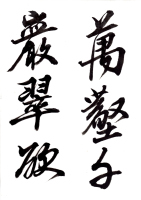 萬壑千
巖翠